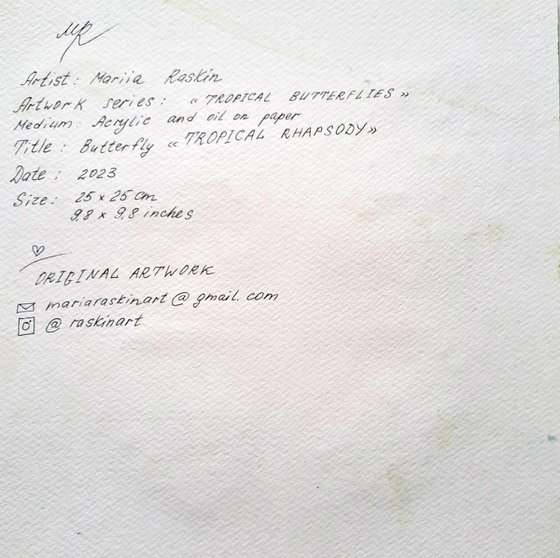 MR
Artist: Mariia Raskin
Artwork series: « TROPICAL BUTTERFLIES »
Medium: Acrylic and oil on paper
Title: Butterfly « TROPICAL RHAPSODY »
Date: 2023
Size: 25 x 25 cm
9,8 x 9,8 inches
ORIGINAL ARTWORK
mariaraskinart@gmail.com
@raskinart